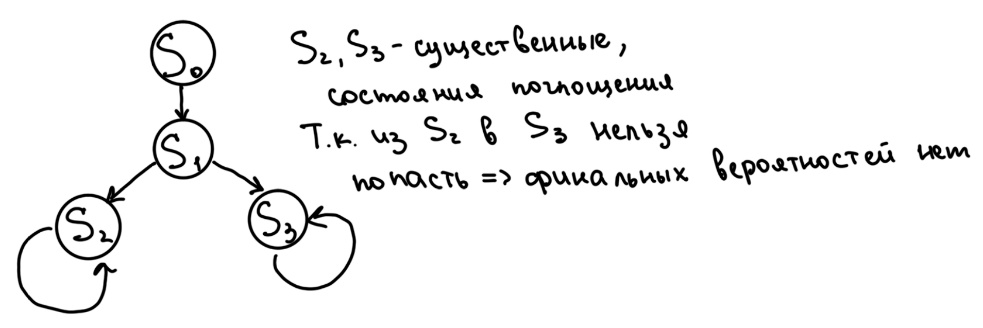 S₀
S₂, S₃ - существенные,
состояния поглощения
Т.к. из S₂ в S₃ нельзя
попасть => финальных вероятностей нет
S₁
S₂
S₃